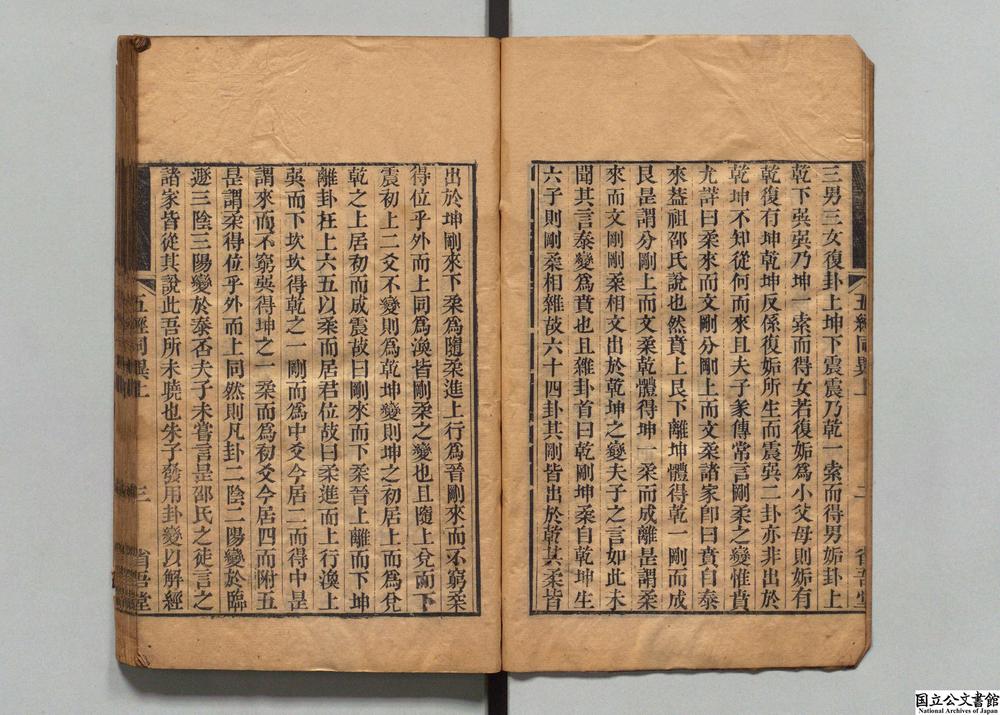 三男三女復卦上坤下震震乃乾一索而得男姤卦上
乾下巽巽乃坤一索而得女若復姤為小父母則姤有
乾復有坤乾坤反係復姤所生而震巽二卦亦非出於
乾坤不知從何而來且夫子彖傳常言剛柔之變惟賁
尤詳曰柔來而文剛分剛上而文柔諸家卽曰賁自泰
來葢祖邵氏說也然賁上艮下離坤體得乾一剛而成
艮是謂分剛上而文柔乾體得坤一柔而成離是謂柔
來而文剛剛柔相文出於乾坤之變夫子之言如此未
聞其言泰變為賁也且雜卦首曰乾剛坤柔自乾坤生
六子則剛柔相雜故六十四卦其剛皆出於乾其柔皆
五經同異上
二
省吾堂
出於坤剛來下柔為隨柔進上行為晉剛來而不窮柔
得位乎外而上同為渙皆剛柔之變也且隨上兌而下
震初上二爻不變則為乾坤變則坤之初居上而為兌
乾之上居初而成震故曰剛來而下柔晉上離而下坤
離卦在上六五以柔而居君位故曰柔進而上行渙上
巽而下坎坎得乾之一剛而為中爻今居二而得中是
謂來而不窮巽得坤之一柔而為初爻今居四而附五
是謂柔得位乎外而上同然則凡卦二陰二陽變於臨
遯三陰三陽變於泰否夫子未嘗言是邵氏之徒言之
諸家皆從其說此吾所未曉也朱子發用卦變以解經
五經同異上
三
省吾堂
国立公文書館
National Archives of Japan